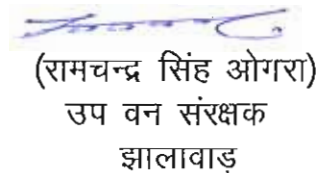 (रामचन्द्र सिंह ओगरा)
उप वन संरक्षक
झालावाड़